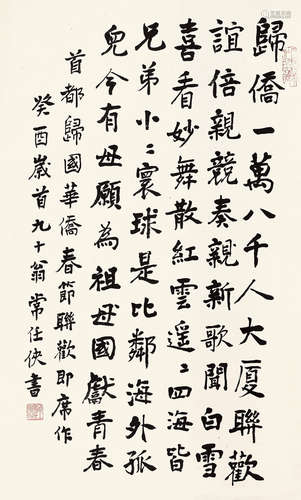 歸僑一萬八千人大厦聯歡
誼倍親競奏親新歌聞白雪
喜看妙舞散紅雲遥〻四海皆
兄弟小〻寰球是比鄰海外孤
兒今有母願為祖母國獻青春
首都歸國華僑春節聯歡即席作
癸酉歲首九十翁常任俠書